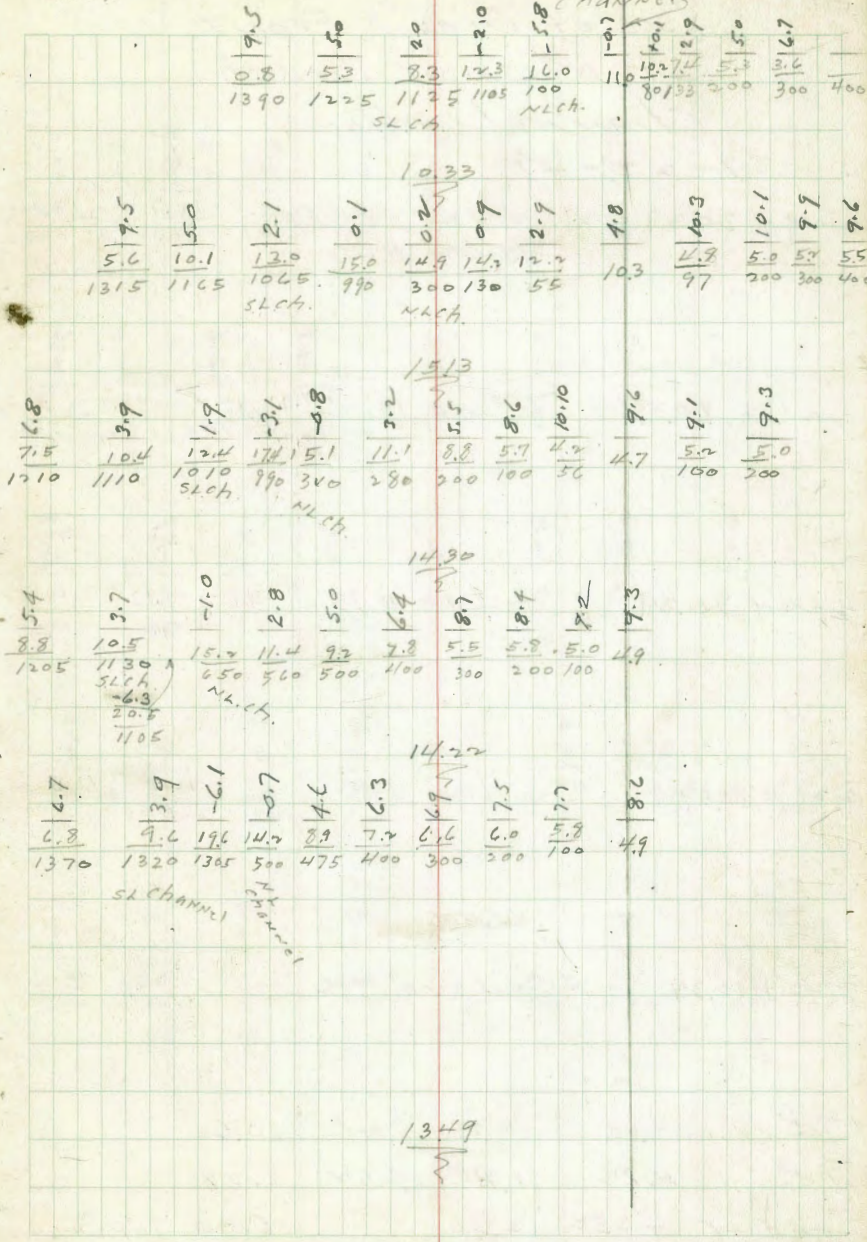 CHANNEL
9.5 5.0 2.0 -2.0 -5.8 -0.7 +0.1 2.9 5.0 6.7
0.8 5.3 8.3 12.3 16.0 11.0 10.2 7.4 5.3 3.6
1390 1225 1125 1105 100 80 133 200 300 400
SL Ch NL Ch.
10.33
9.5 5.0 2.1 0.1 0.2 0.9 2.9 4.8 10.3 10.1 9.9 9.6
5.6 10.1 13.0 15.0 14.9 14.2 12.2 10.3 4.8 5.0 5.2 5.5
1315 1165 1065 990 300 130 55 97 200 300 400
SL Ch. NL Ch.
15.13
6.8 3.9 1.9 -3.1 -0.8 3.2 5.5 8.6 10.10 9.6 9.1 9.3
7.5 10.4 12.4 17.4 15.1 11.1 8.8 5.7 4.2 4.7 5.2 5.0
1210 1110 1010 990 340 280 200 100 56 100 200
SL Ch NL Ch.
14.30
5.4 3.7 -1.0 2.8 5.0 6.4 8.7 8.4 9.2 9.3
8.8 10.5 15.2 11.4 9.2 7.8 5.5 5.8 5.0 4.9
1205 1130 650 560 500 400 300 200 100
SL Ch NL. Ch.
-6.3
20.5
1105
14.22
6.7 3.9 -6.1 -0.7 4.6 6.3 6.9 7.5 7.7 8.6
6.8 9.6 19.6 14.2 8.9 7.2 6.6 6.0 5.8 4.9
1370 1320 1305 500 475 400 300 200 100
SL Channel NL Channel
13.49